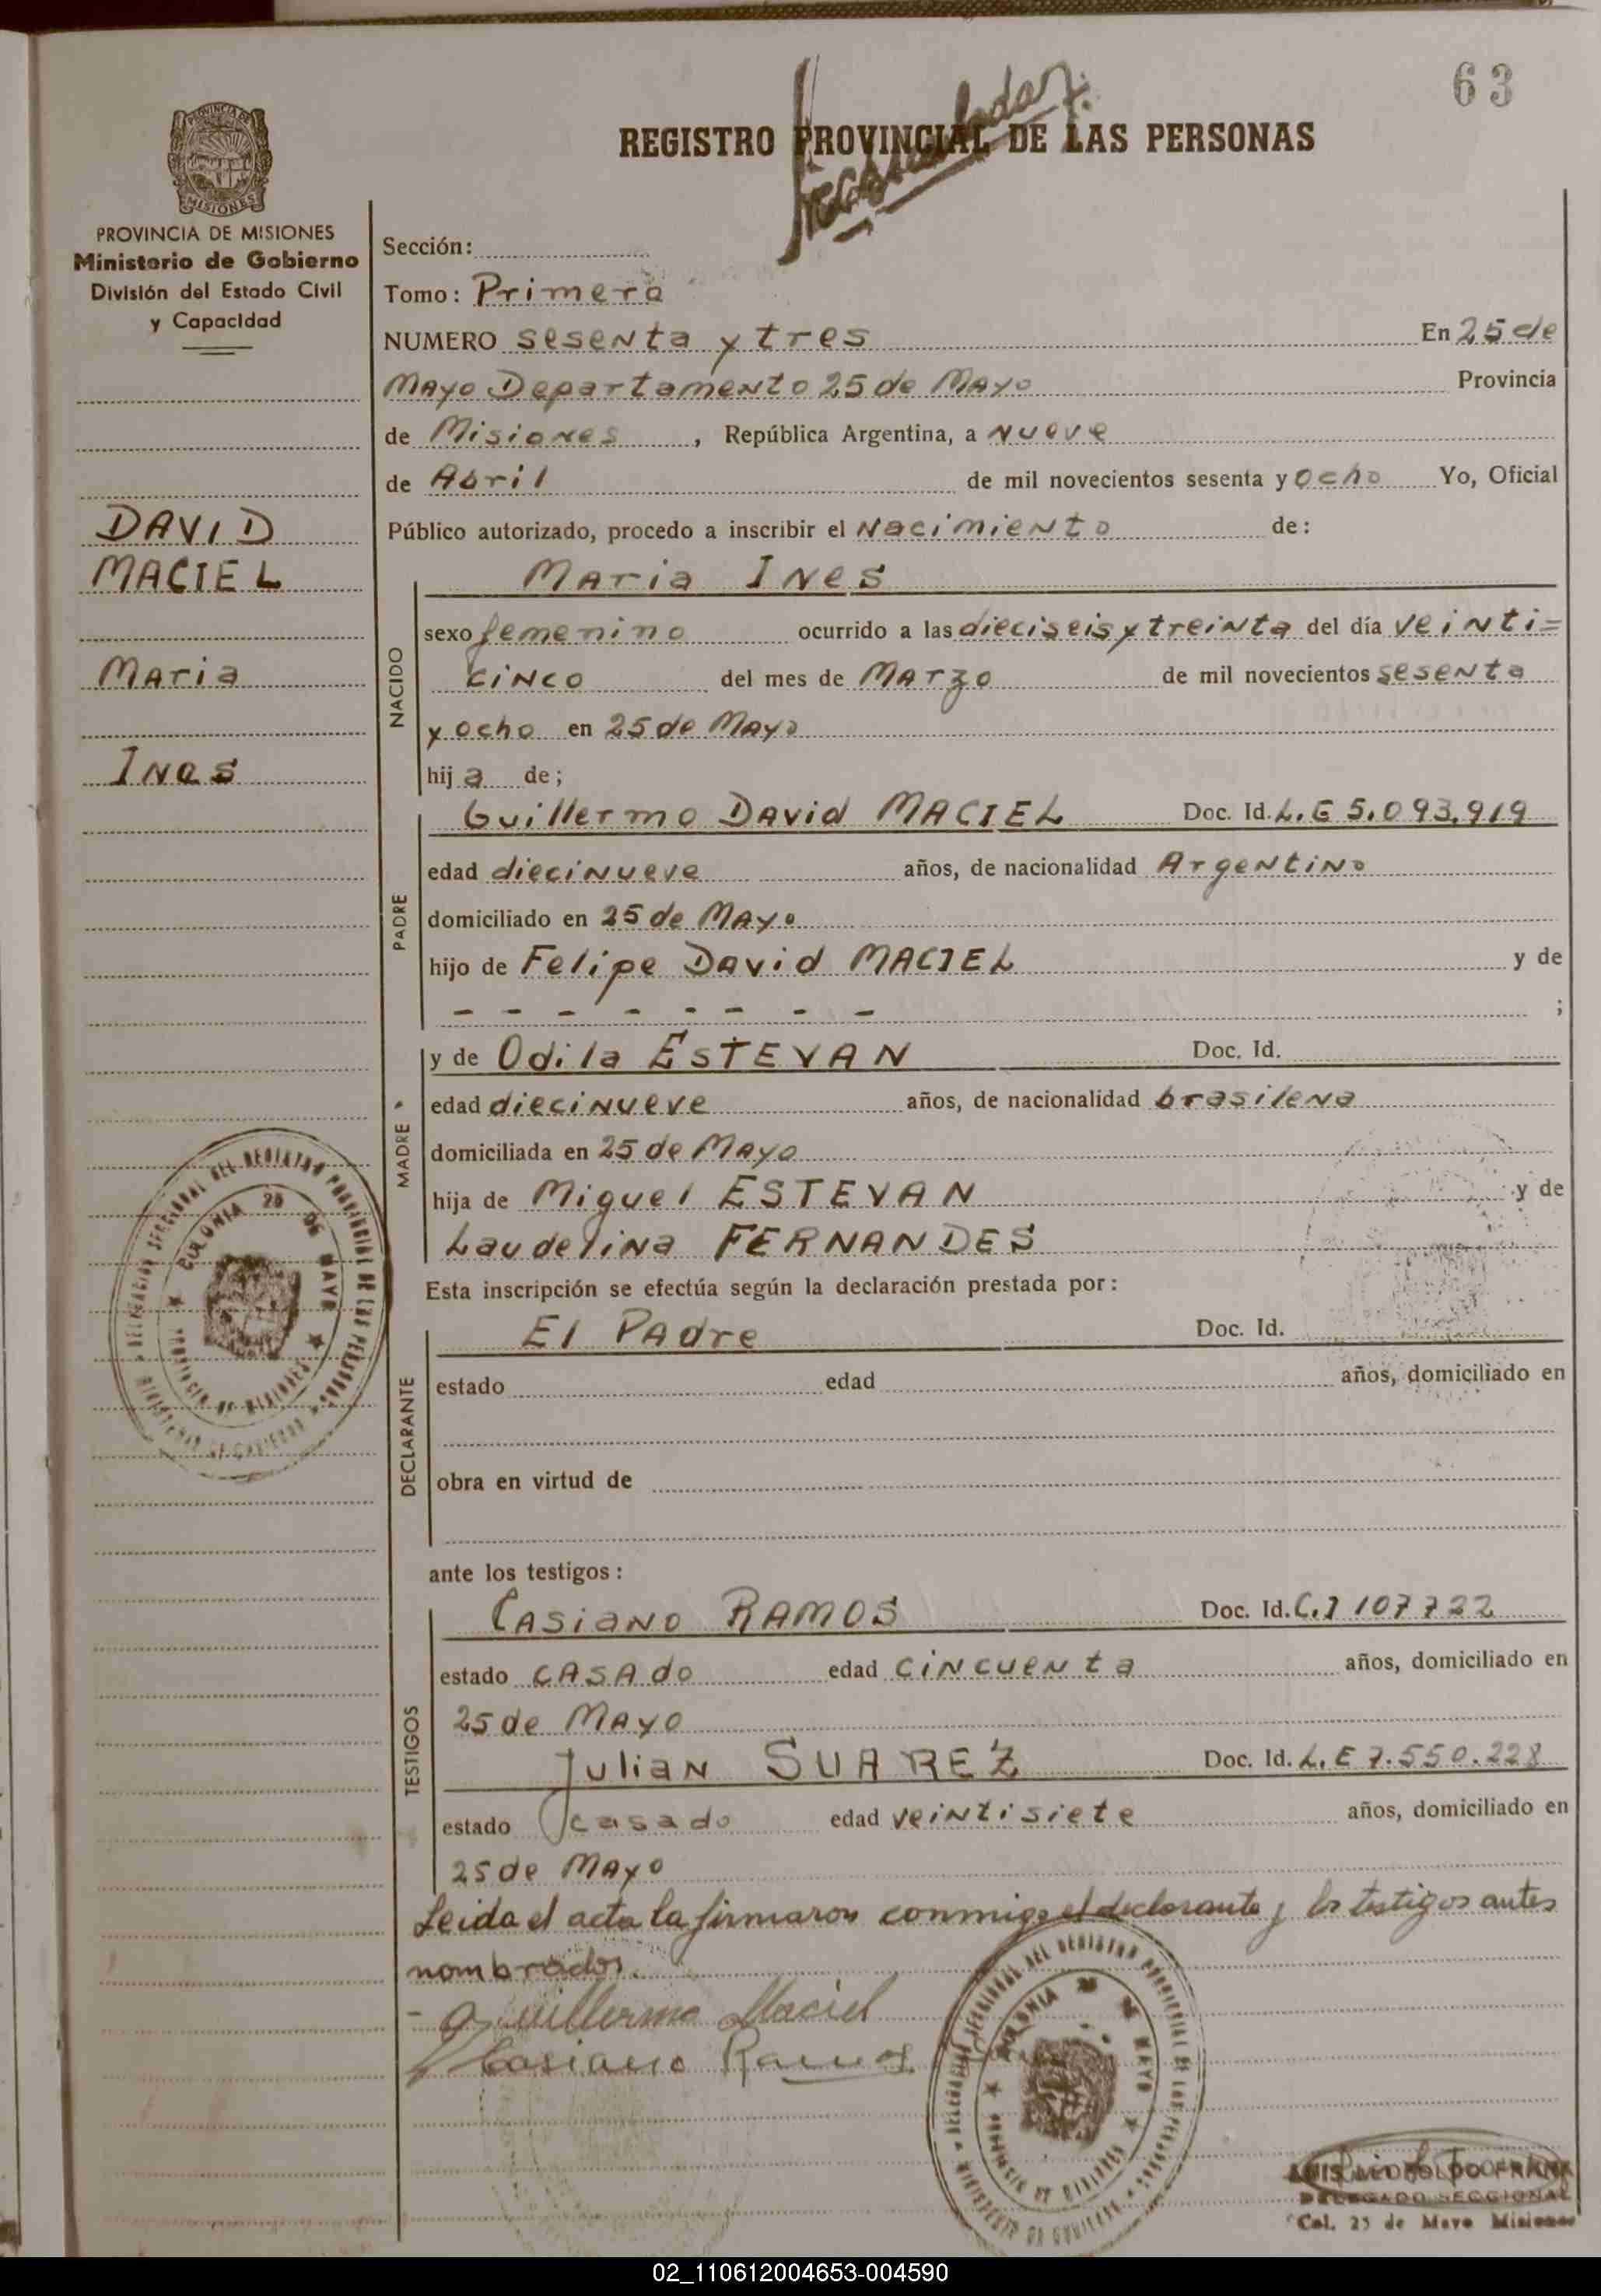 63
REGISTRO PROVINCIAL DE LAS PERSONAS
PROVINCIA DE
MISIONES
PROVINCIA DE MISIONES
Ministerio de Gobierno
División del Estado Civil
y Capacidad
DAVID
MACIEL
Maria
Ines
Sección:
Tomo: Primero
NUMERO sesenta y tres En 25 de
Mayo Departamento 25 de Mayo Provincia
de Misiones, República Argentina, a Nueve
de Abril de mil novecientos sesenta y ocho Yo, Oficial
Público autorizado, procedo a inscribir el Nacimiento de:
NACIDO
Maria Ines
sexo femenino ocurrido a las dieciseis y treinta del día veinti=
cinco del mes de Marzo de mil novecientos sesenta
y ocho en 25 de Mayo
hija de;
PADRE
Guillermo David MACIEL Doc. Id. L.E 5.093.919
edad diecinueve años, de nacionalidad Argentino
domiciliado en 25 de Mayo
hijo de Felipe David MACIEL y de
- - - - - - - - ;
MADRE
y de Odila ESTEVAN Doc. Id.
edad diecinueve años, de nacionalidad brasilena
domiciliada en 25 de Mayo
hija de Miguel ESTEVAN y de
Laudelina FERNANDES
Esta inscripción se efectúa según la declaración prestada por:
DECLARANTE
El Padre Doc. Id.
estado edad años, domiciliado en
obra en virtud de
ante los testigos:
TESTIGOS
Casiano RAMOS Doc. Id. C.I 107722
estado casado edad cincuenta años, domiciliado en
25 de Mayo
Julian SUAREZ Doc. Id. L.E 7.550.228
estado casado edad veintisiete años, domiciliado en
25 de Mayo
Leida el acta la firmaron conmigo el declarante y los testigos antes
nombrados.
- Guillermo Maciel
Casiano Ramos
DELEGACION SECCIONAL DEL REGISTRO PROVINCIAL DE LAS PERSONAS
MINISTERIO DE GOBIERNO
COLONIA 25 DE MAYO
PROVINCIA DE MISIONES
DELEGACION SECCIONAL DEL REGISTRO PROVINCIAL DE LAS PERSONAS
MINISTERIO DE GOBIERNO
COLONIA 25 DE MAYO
PROVINCIA DE MISIONES
LUIS LEOPOLDO FRANK
DELEGADO SECCIONAL
Col. 25 de Mayo Misiones
02_110612004653-004590